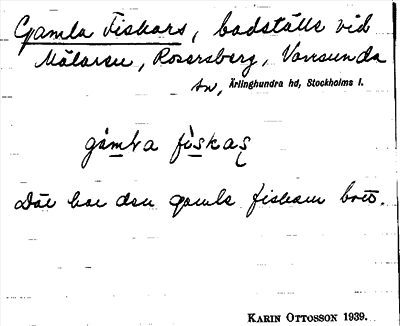 Gamla Fiskars, badställe vid
Mälaren, Rosersberg, Vansunda
sn, Ärlinghundra hd, Stockholms l.
gàmla fìskaṣ
Där har den gamle fiskarn bott.
KARIN OTTOSSON 1939.